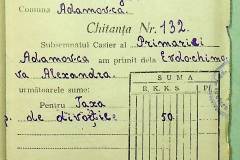 Comuna Adamovca.
Chitanța Nr. 132.
Subsemnatul Casier al Primăriei
Adamovca am primit dela Evdochimo-
va Alexandra.
următoarele sume:
Pentru Taxa
p. de divorție
SUMA
B. K. K. S.
50